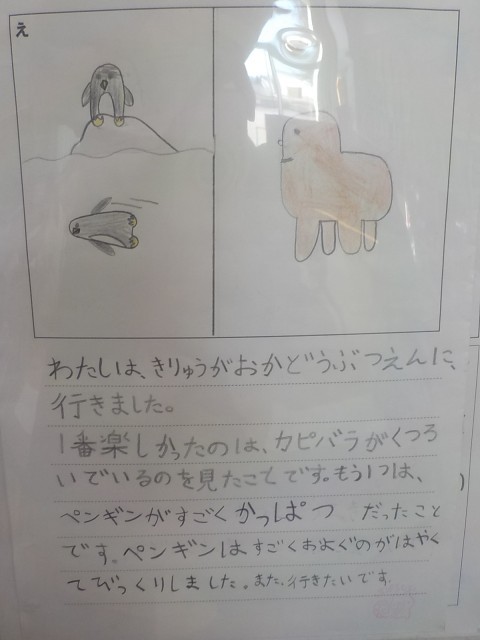 え
わたしは、きりゅうがおかどうぶつえんに、
行きました。
1番楽しかったのは、カピバラがくつろ
いでいるのを見たことです。もう1つは、
ペンギンがすごくかっぱつ だったこと
です。ペンギンはすごくおよぐのがはやく
てびっくりしました。また、行きたいです。